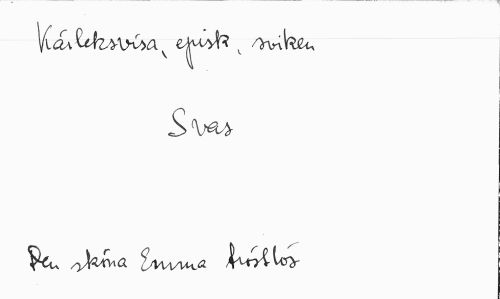 Kärleksvisa, episk, sviken
Svas
Den sköna Emma tröstlös